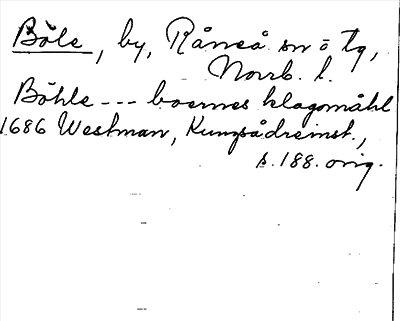 Böle, by, Råneå sn o tg,
Norrb. l.
Böhle --- boernes klagomåhl
1686 Westman, Kungsådreinst.,
s. 188. orig.